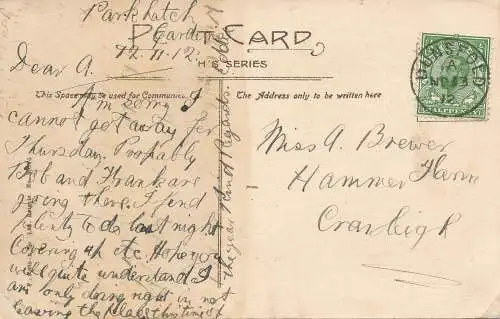 Parkhatch
POST CARD
12.11.12.
H S SERIES
Dear A.
This Space may be used for Communication
The Address only to be written here
I'm sorry I
cannot get away for
Thursday. Probably
Bob and Frank are
going there. I find
plenty to do last night
Covering up etc Hope you
will quite understand I
am only doing right in not
leaving the place this time of
the year Kind Regards.
DUNSFOLD
A
NO 13
12
Miss A. Brewer
Hammer Farm
Cranleigh